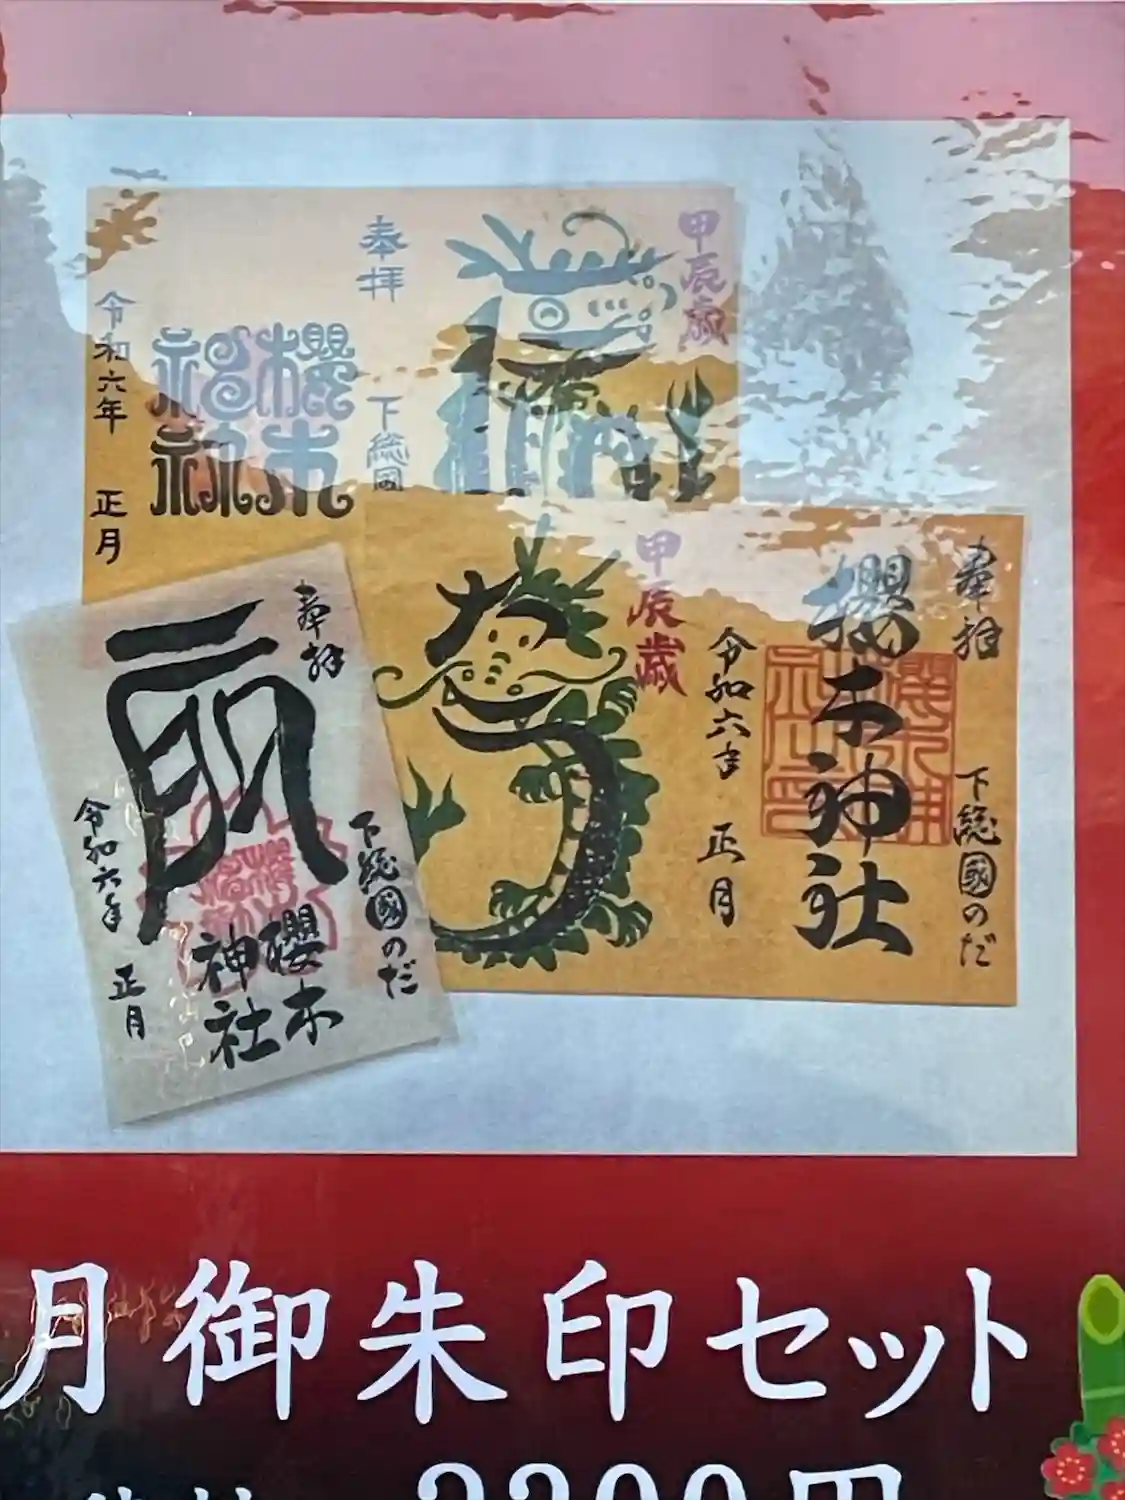 甲辰歳
奉拝
下総國
櫻木
神社
令和六年 正月
奉拝
下総國のだ
櫻木神社
令和六年 正月
甲辰歳
奉拝
下総國のだ
櫻木
神社
令和六年 正月
月御朱印セット